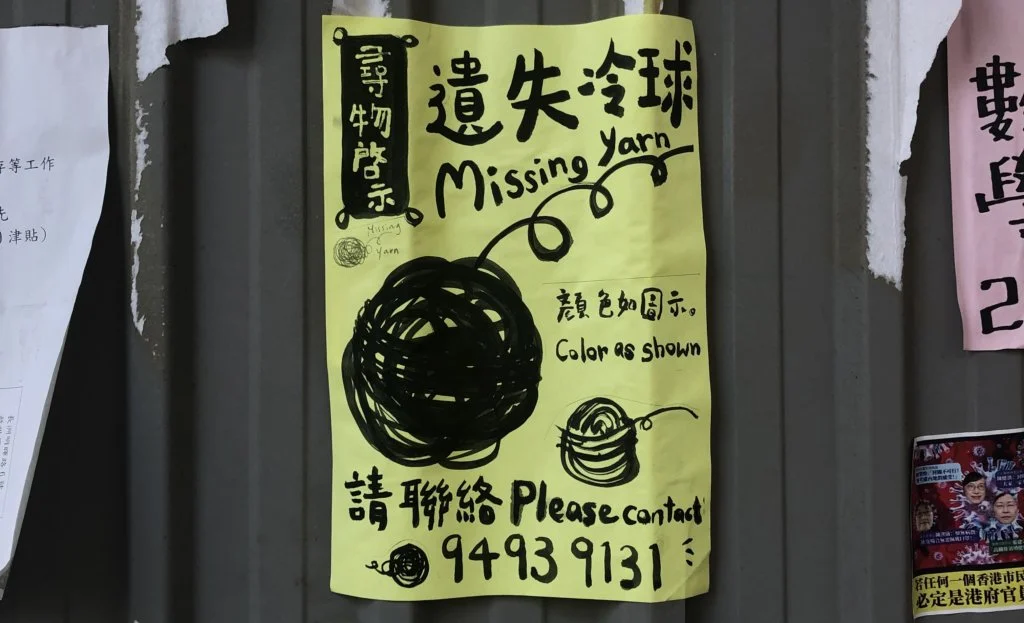 尋物啓示
遺失冷球
Missing Yarn
Missing
Yarn
顏色如圖示。
Color as shown
請聯絡 Please contact
9493 9131
等工作
先
津貼)
數學
2
若任何一個香港市民
必定是港府官員